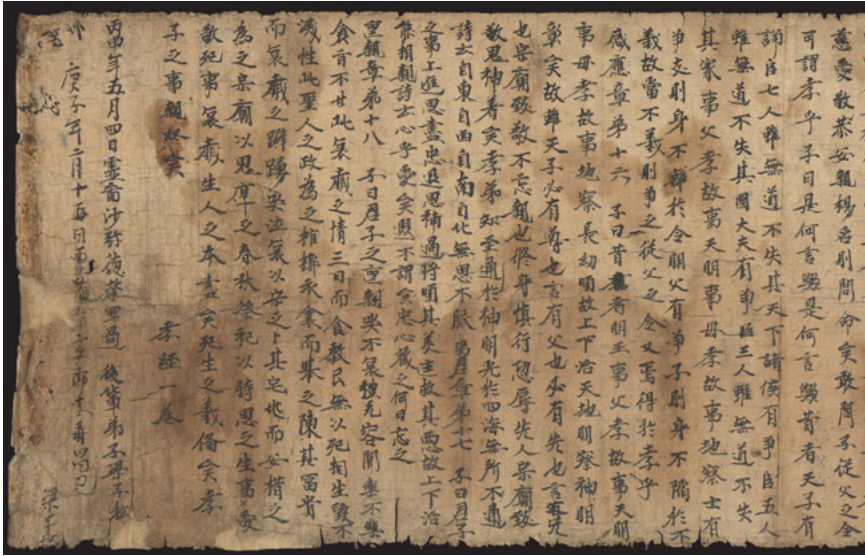 慈愛敬恭安親揚名則聞命矣敢問子從父之令
可謂孝乎子曰是何言歟是何言歟昔者天子有
諍臣七人雖無道不失其天下諸侯有爭臣五人
雖無道不失其國大夫有爭臣三人雖無道不失
其家事父孝故事天明事母孝故事地察士有
爭友則身不離於令明父有爭子則身不陷於不
義故當不義則爭之從父之令又焉得於孝乎
感應章第十六 子曰昔者明王事父孝故事天明
事母孝故事地察長幼順故上下治天地明察神明
彰矣故雖天子必有尊也言有父也必有先也言有兄
也宗廟致敬不忘親也脩身慎行恐辱先人宗廟致
敬鬼神著矣孝弟知至通於神明光於四海無所不通
詩云自東自西自南自北無思不服 事君章弟十七 子曰君子
之事上進思盡忠退思補過將順其美主救其惡故上下治
能相親詩云心乎愛矣遐不謂矣忠心藏之何日忘之
喪親章弟十八 子曰君子之喪親哭不哀禮无容聞樂不樂
食旨不甘此哀慼之情三日而食教民無以死相生毀不
滅性此聖人之政為之棺槨衣衾而舉之陳其簠簋
而哀慼之擗踴哭泣哀以安之卜其宅兆而安措之
為之宗廟以鬼享之春秋祭祀以時思之生事愛
敬死事哀慼生人之本盡矣死生之義備矣孝
子之事親終矣
孝經一卷
丙申年五月四日靈圖沙弥德榮寫過 後輩弟子梁子松
庚子年二月十五日靈圖寺
梁子松